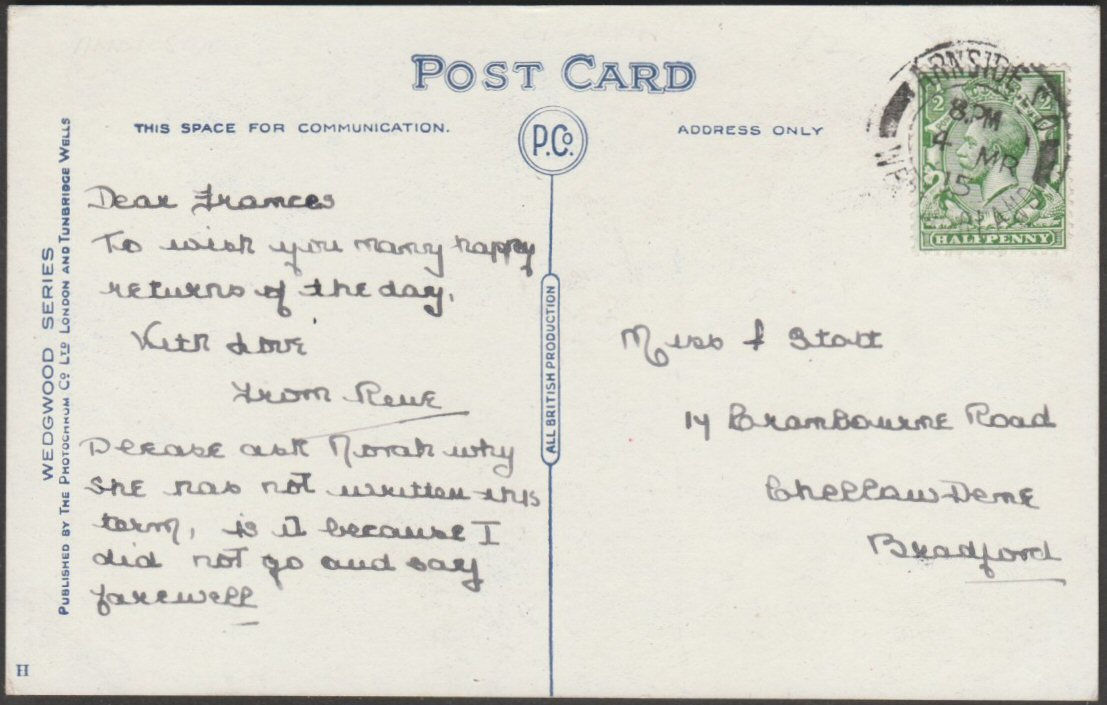 POST CARD
THIS SPACE FOR COMMUNICATION.
P.Co.
ADDRESS ONLY
WEDGWOOD SERIES
PUBLISHED BY THE PHOTOCHROM CO LTD LONDON AND TUNBRIDGE WELLS
ALL BRITISH PRODUCTION
Dear Frances
To wish you many happy
returns of the day.
With Love
from Rene
Please ask Norah why
she has not written this
term, is it because I
did not go and say
farewell
Miss f Stott
14 Brambourne Road
Chellaw Dene
Bradford
ARNSIDE
8.PM
4 MR
15
HALFPENNY
H